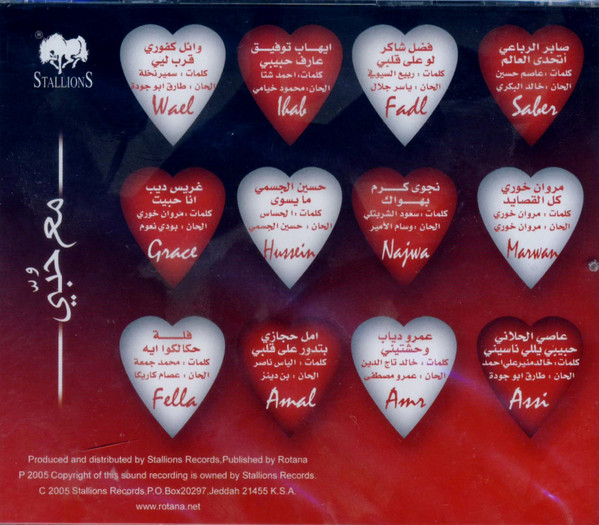 ®
STALLIONS
مع حبي
وائل كفوري
قرب ليي
كلمات : سمير نخلة
الحان : طارق ابو جودة
Wael
ايهاب توفيق
عارف حبيبي
كلمات: احمد شتا
الحان: محمود خيامي
Ihab
فضل شاكر
لو على قلبي
كلمات : ربيع السيوفي
الحان : ياسر جلال
Fadl
صابر الرباعي
أتحدى العالم
كلمات : عاصم حسين
الحان : خالد البكري
Saber
غريس ديب
انا حبيت
كلمات : مروان خوري
الحان : بودي نعوم
Grace
حسين الجسمي
ما يسوى
كلمات : الحساس
الحان : حسين الجسمي
Hussein
نجوى كرم
بهواك
كلمات : سعود الشربتلي
الحان : وسام الأمير
Najwa
مروان خوري
كل القصايد
كلمات : مروان خوري
الحان : مروان خوري
Marwan
فلة
حكالكوا ايه
كلمات : محمد جمعة
الحان : عصام كاريكا
Fella
امل حجازي
بتدور على قلبي
كلمات : الياس ناصر
الحان : بن دينز
Amal
عمرو دياب
وحشتيني
كلمات : خالد تاج الدين
الحان : عمرو مصطفى
Amr
عاصي الحلاني
حبيبي يللي ناسيني
كلمات : خالد منير علي احمد
الحان : طارق ابو جودة
Assi
Produced and distributed by Stallions Records,Published by Rotana
P 2005 Copyright of this sound recording is owned by Stallions Records.
C 2005 Stallions Records,P.O.Box20297,Jeddah 21455 K.S.A.
www.rotana.net